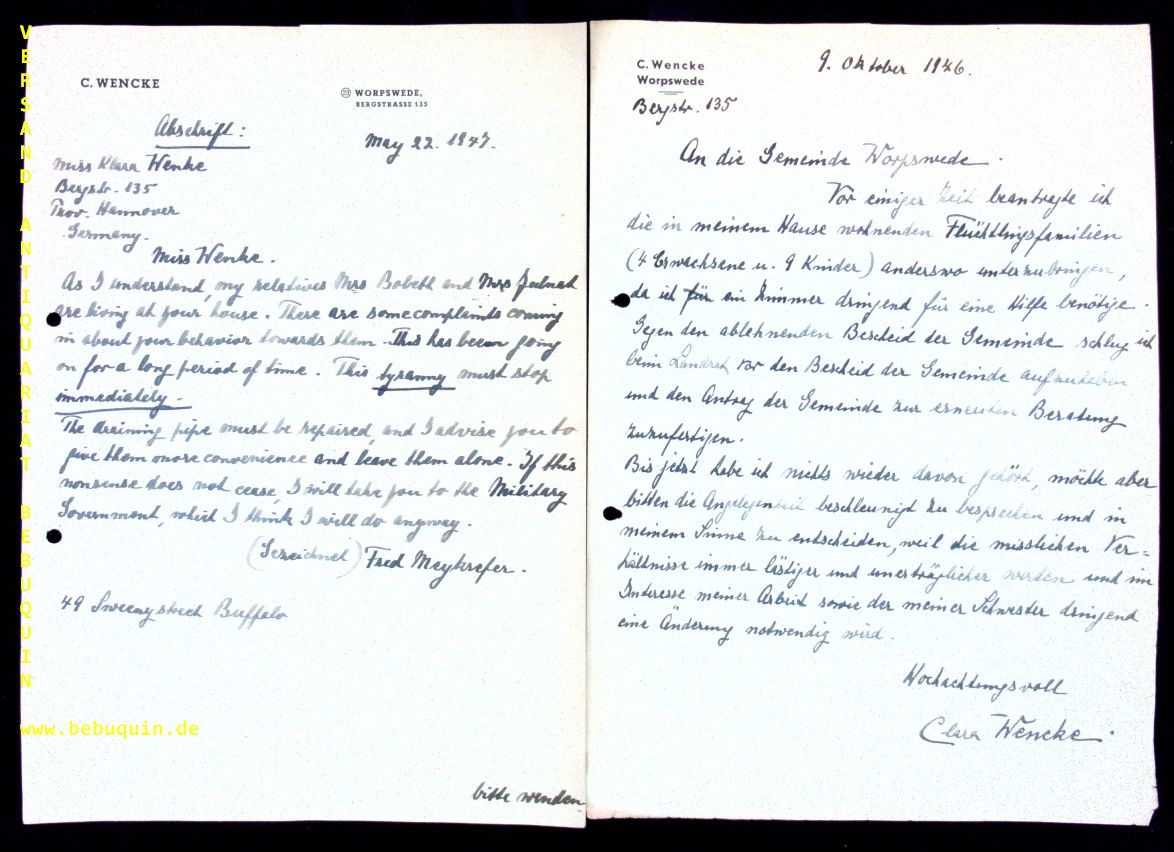 VERSAND ANTIQUARIAT BEBUQUIN
www.bebuquin.de
C. WENCKE
23 WORPSWEDE,
BERGSTRASSE 135
Abschrift:
May 22. 1947.
Miss Klara Wenke
Bergstr. 135
Prov. Hannover
Germany.
Miss Wenke.
As I understand, my relatives Mrs Bobeth and Mrs
are living at your house. There are some complaints coming
in about your behavior towards them. This has been going
on for a long period of time. This tyranny must stop
immediately.
The draining pipe must be repaired, and I advise you to
give them more convenience and leave them alone. If this
nonsense does not cease, I will take you to the Military
Government, which I think I will do anyway.
(Gezeichnet) Fred Meykrefer.
49 Sweenystreet Buffalo
bitte wenden
C. Wencke
Worpswede
Bergstr. 135
9. Oktober 1946.
An die Gemeinde Worpswede.
Vor einiger Zeit beantragte ich
die in meinem Hause wohnenden Flüchtlingsfamilien
(4 Erwachsene u. 9 Kinder) anderswo unterzubringen,
da ich für ein Zimmer dringend für eine Hilfe benötige.
Gegen den ablehnenden Bescheid der Gemeinde schlug ich
beim Landrat vor den Bescheid der Gemeinde aufzuheben
und den Antrag der Gemeinde zur erneuten Beratung
zuzufertigen.
Bis jetzt habe ich nichts wieder davon gehört, möchte aber
bitten die Angelegenheit beschleunigt zu besprechen und in
meinem Sinne zu entscheiden, weil die misslichen Ver=
hältnisse immer lästiger und unerträglicher werden und im
Interesse meiner Arbeit sowie der meiner Schwester dringend
eine Änderung notwendig wird.
Hochachtungsvoll
Clara Wencke.